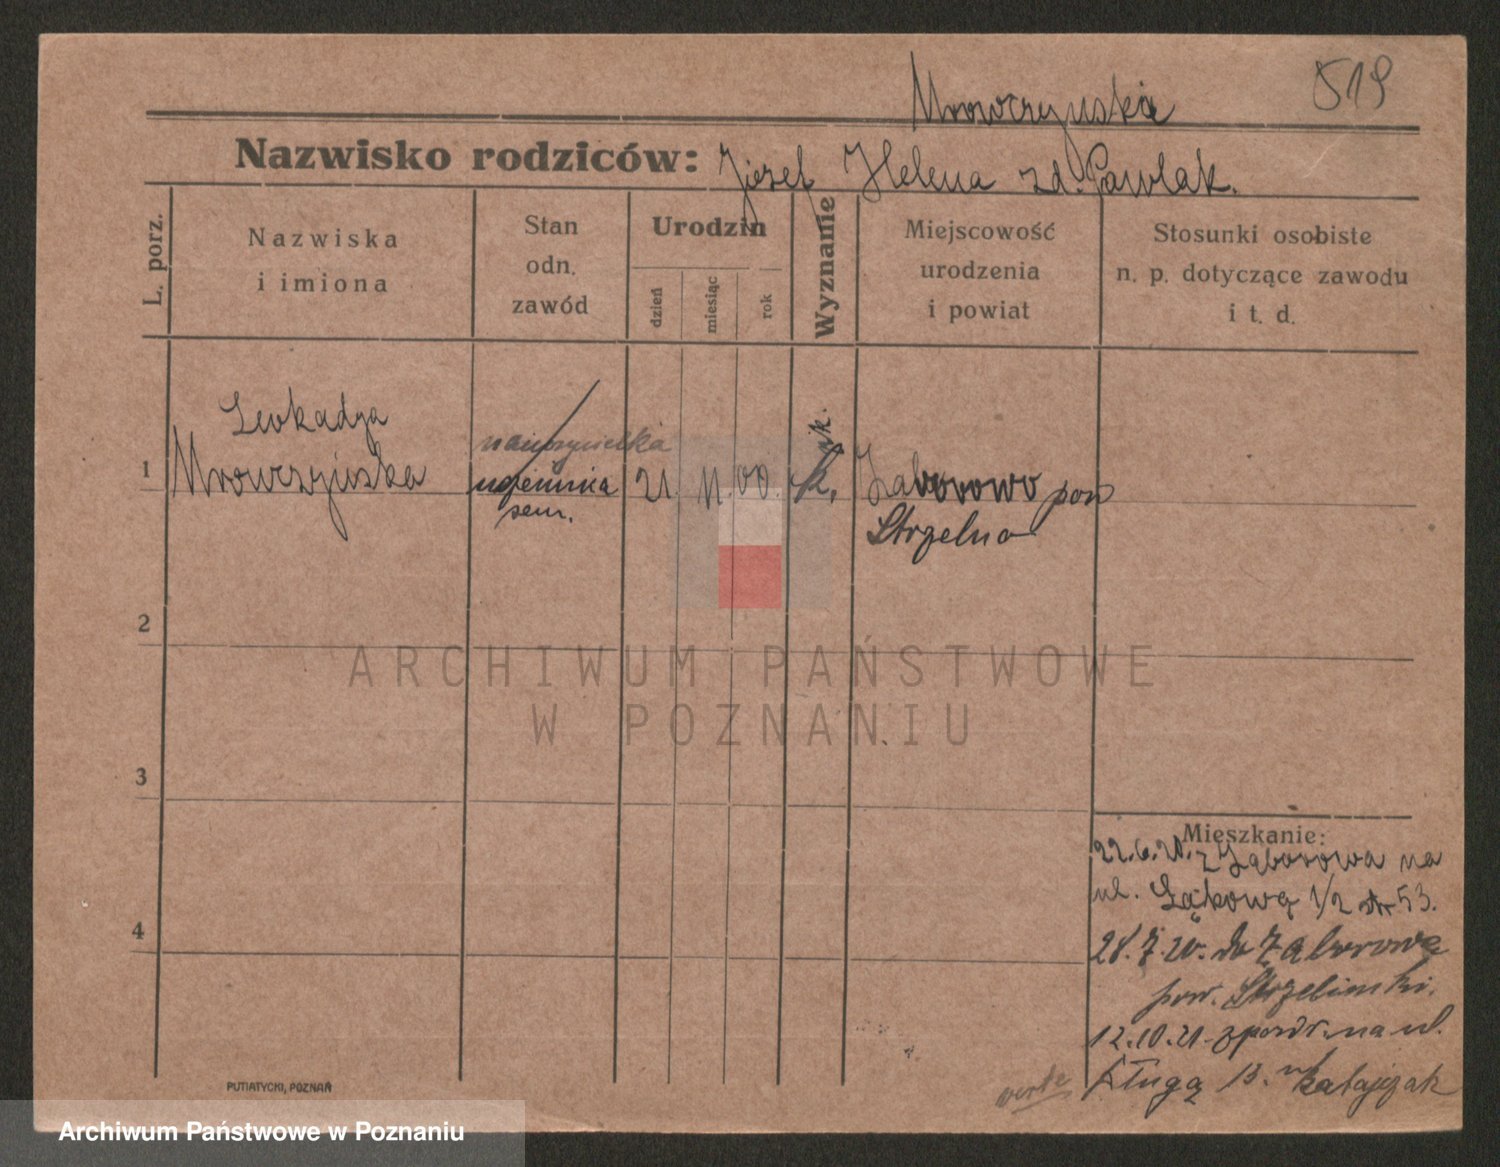 519
Mrowczynskie
Nazwisko rodziców: Józef Helena zd. Pawlak.
L. porz.
Nazwiska
i imiona
Stan
odn.
zawód
Urodzin
dzień
miesiąc
rok
Wyznanie
Miejscowość
urodzenia
i powiat
Stosunki osobiste
n. p. dotyczące zawodu
i t. d.
1
Leokadza
Mrowczyńska
nauczycielka
uczennica
sem.
21. 11. 00. k.
Zaborowo pow
Strzelno
2
3
4
Mieszkanie:
22.6.20. z Zaborowa na
ul. Łąkową 1/2 53.
28.7.20. do Zaborowa
pow. Strzeliński.
12.10.21. z powr. na ul.
Długą 13. Ratajczak
verte
PUTIATYCKI, POZNAŃ
ARCHIWUM PAŃSTWOWE
W POZNANIU
Archiwum Państwowe w Poznaniu